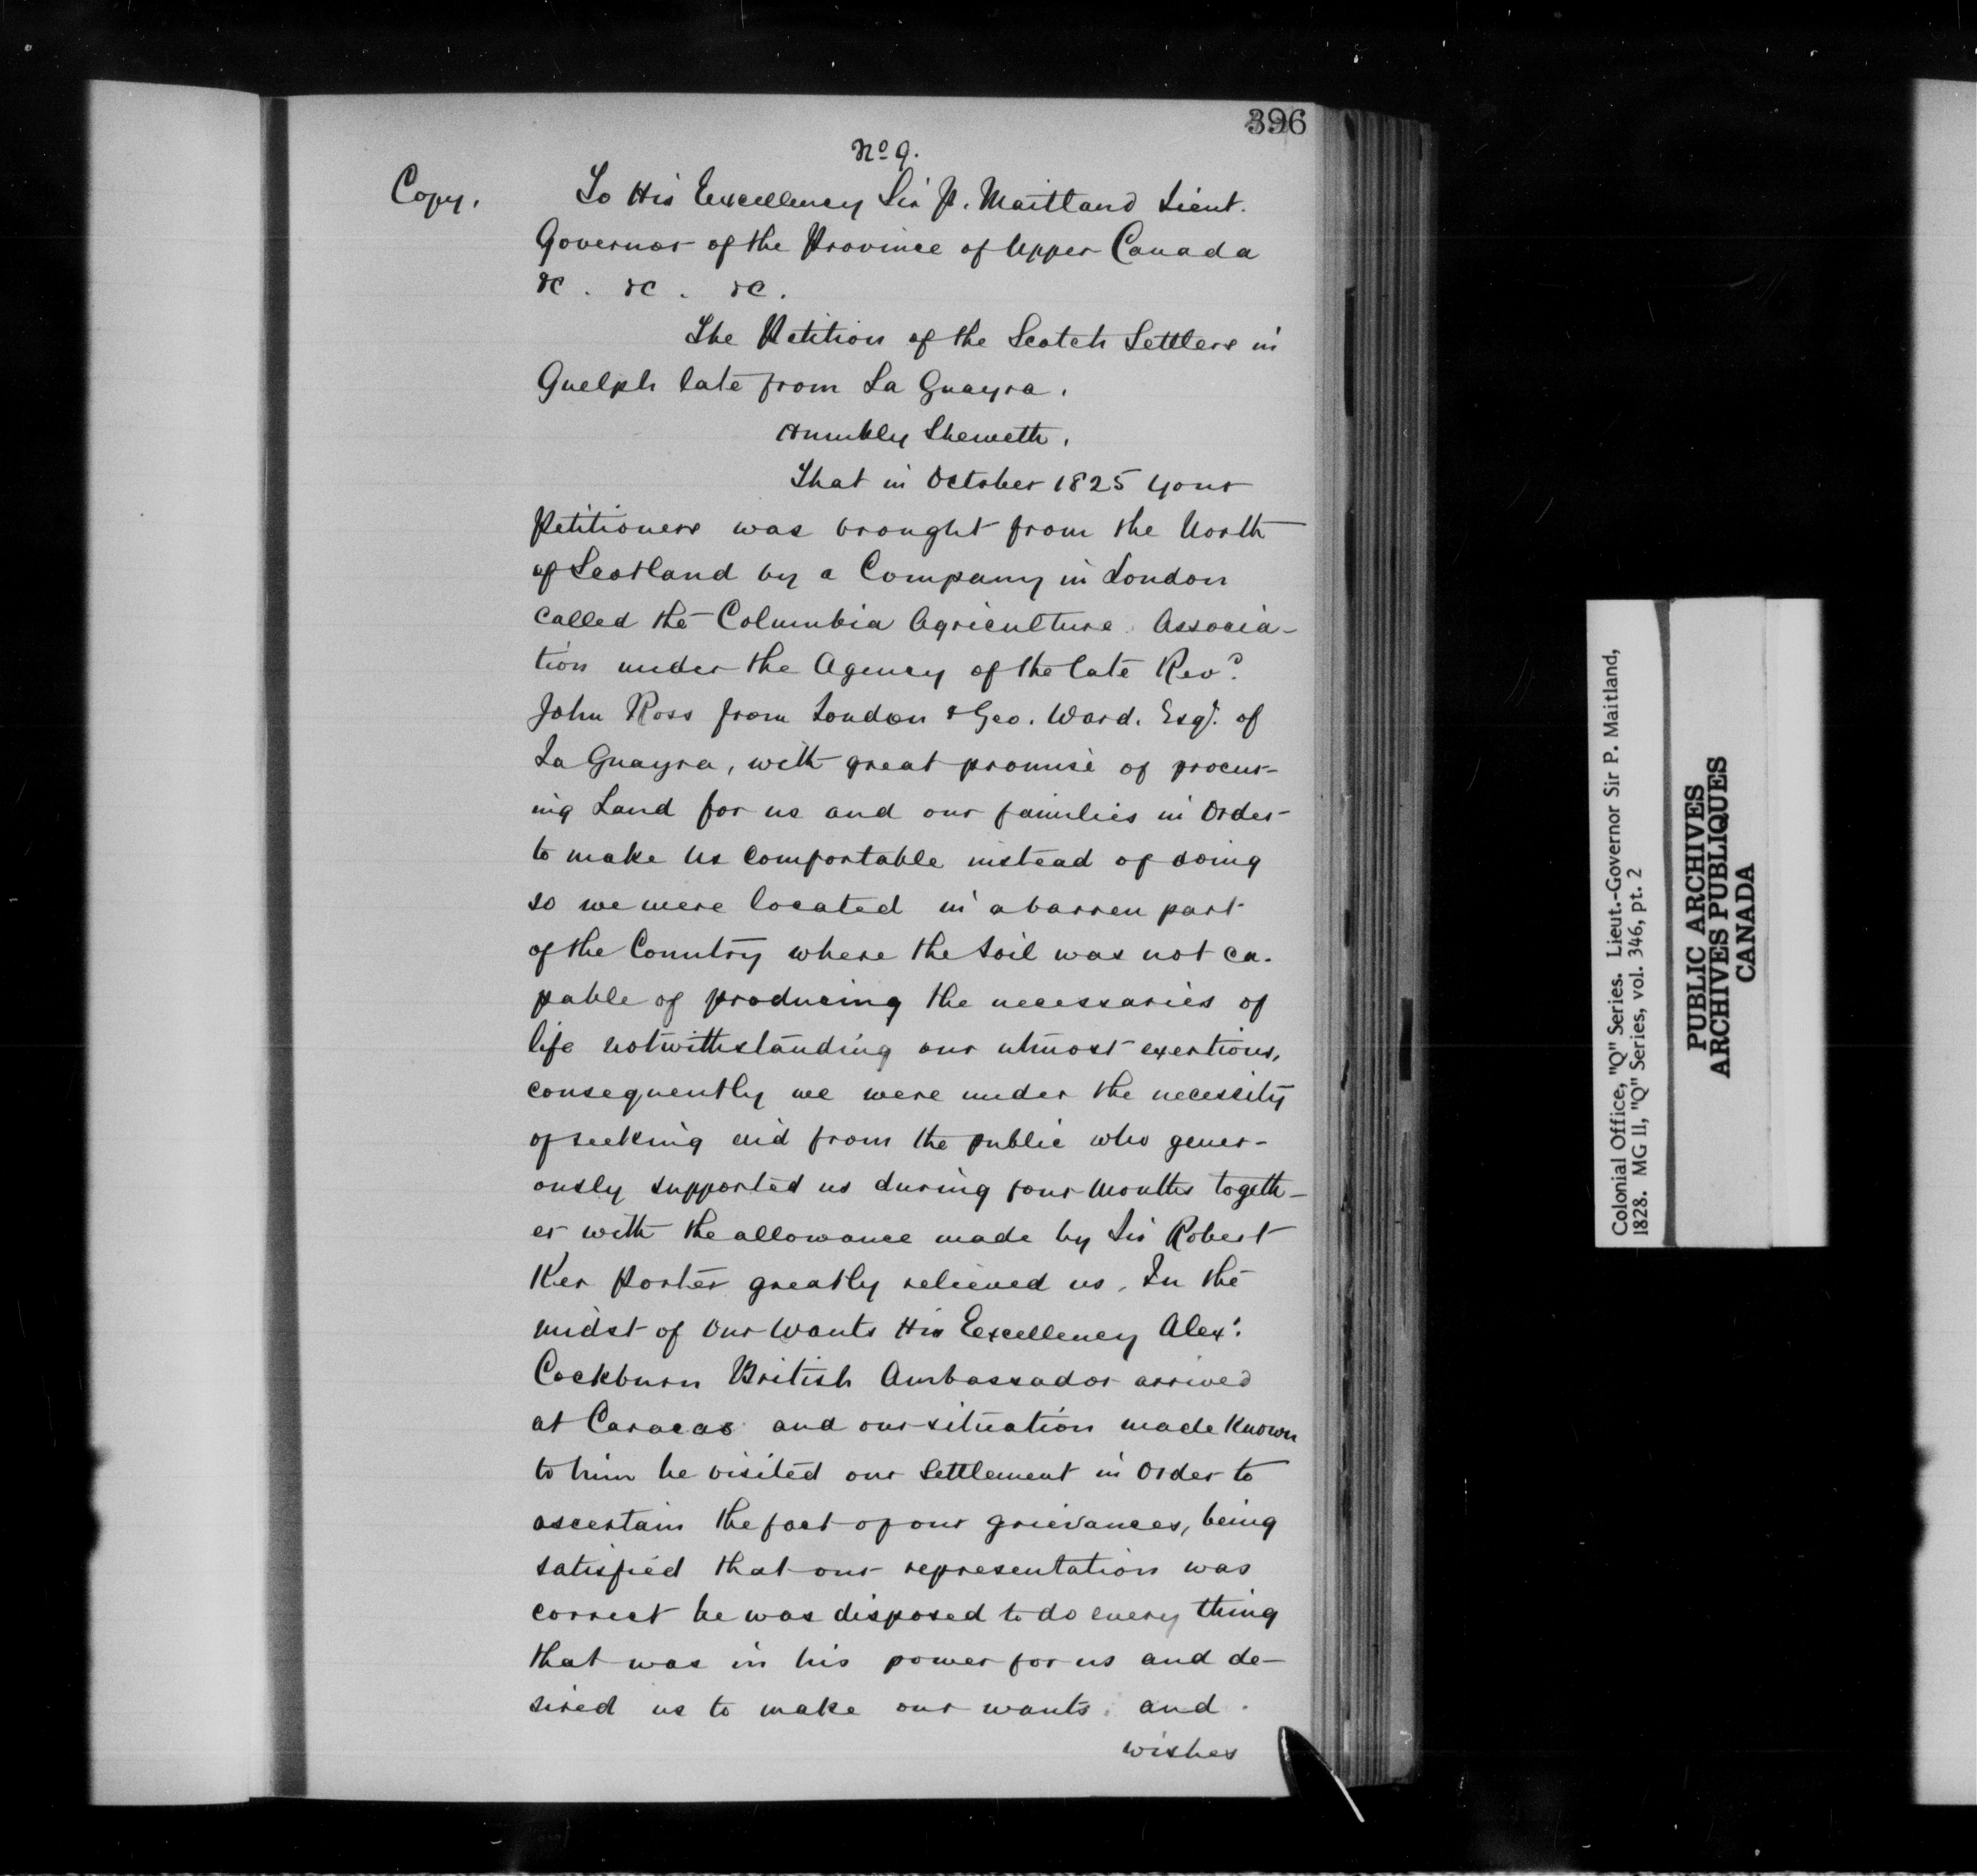 396
No 9.
Copy. To His Excellency Sir P. Maitland Lieut.
Governor of the Province of Upper Canada
&c. &c. &c.
The Petition of the Scotch Settlers in
Guelph late from La Guayra.
Humbly Sheweth.
That in October 1825 your
Petitioners was brought from the North
of Scotland by a Company in London
called the Columbia Agriculture Associa-
tion under the Agency of the late Revd.
John Ross from London & Geo. Ward. Esqr. of
La Guayra, with great promise of procur-
ing Land for us and our families in Order
to make us comfortable instead of doing
so we were located in a barren part
of the Country where the soil was not ca-
pable of producing the necessaries of
life notwithstanding our utmost exertions,
consequently we were under the necessity
of seeking aid from the public who gener-
ously supported us during four Months togeth-
er with the allowance made by Sir Robert
Ker Porter greatly relieved us. In the
midst of our wants His Excellency Alexr.
Cockburn British Ambassador arrived
at Caracas and our situation made known
to him he visited our Settlement in Order to
ascertain the fact of our grievances, being
satisfied that our representation was
correct he was disposed to do every thing
that was in his power for us and de-
sired us to make our wants and
wishes
Colonial Office, "Q" Series. Lieut.-Governor Sir P. Maitland,
1828. MG 11, "Q" Series, vol. 346, pt. 2
PUBLIC ARCHIVES
ARCHIVES PUBLIQUES
CANADA